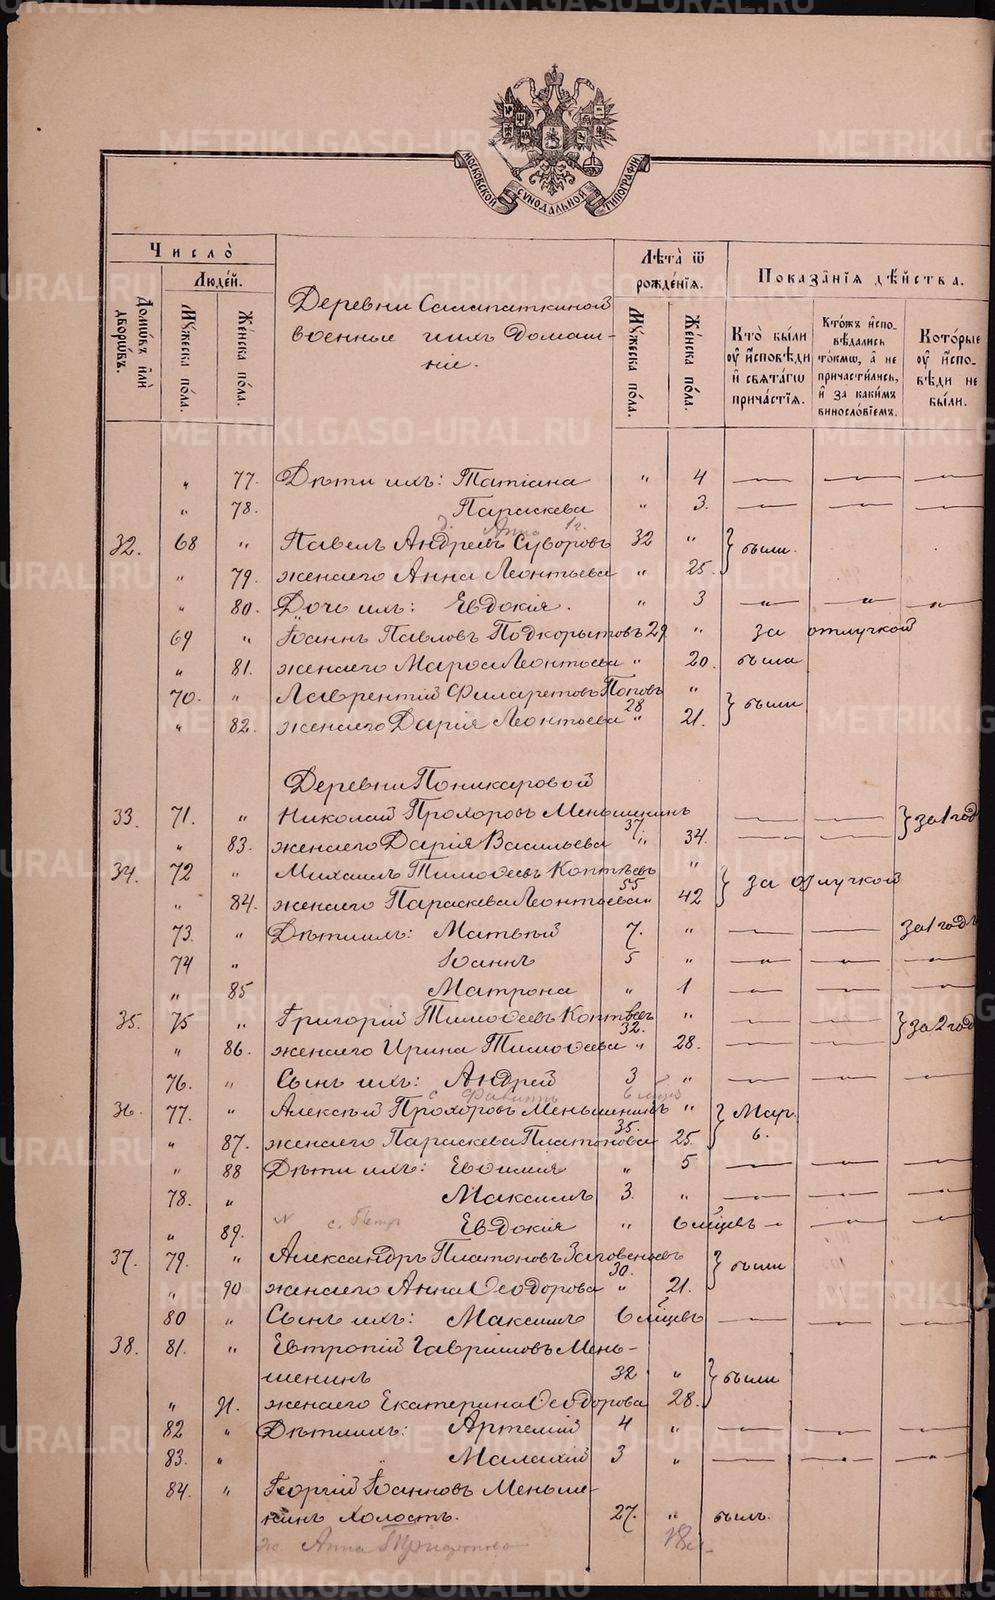 МОСКОВСКОЙ СѴНОДАЛЬНОЙ ТИПОГРАФІИ
Число
Людей.
Домовъ или дворовъ.
Мужеска пола.
Женска пола.
Деревни Салапаткиной
военные и ихъ домаш-
ніе.
Лѣта ѿ рожденія.
Мужеска пола.
Женска пола.
Показанія дѣйства.
Кто были оу исповѣди и святагѡ причастія.
Ктожъ исповѣдались токмѡ, а не причастились, и за какимъ винословіемъ.
Которые оу исповѣди не были.
" 77. Дѣти ихъ: Татіана " 4
" 78. Параскева " 3.
д. Анна 1 г.
32. 68 " Павелъ Андреевъ Суворовъ 32 " } были.
" 79. жена его Анна Леонтьева " 25.
" 80. Дочь ихъ: Евдокія. " 3 " " "
69 " Іоаннъ Павловъ Подкорытовъ 29 " за отлучкой
" 81. жена его Марѳа Леонтьева " 20. была
70. " Лаврентій Филаретовъ Поповъ 28 " } были
" 82. жена его Дарія Леонтьева " 21.
Деревни Поникаровой
33. 71. " Николай Прохоровъ Меньшенинъ 37. } за 1 год
" 83. жена его Дарія Васильева " 34.
34. 72 " Михаилъ Тимоѳеевъ Коптѣевъ 55 " } за отлучкой
" 84. жена его Параскева Леонтьева " 42
73. " Дѣти ихъ: Матвѣй 7. " за 1 годъ
74 " Іоаннъ 5 "
" 85 Матрона " 1
35. 75 " Григорій Тимоѳеевъ Коптѣевъ 32. " } за 2 год
" 86. жена его Ирина Тимоѳеева " 28.
76. " Сынъ ихъ: Андрей 3 "
36. 77. " Алексѣй Прохоровъ Меньшенинъ 35. " } Мар. 6.
" 87. жена его Параскева Платонова 25.
" 88 Дѣти ихъ: Евѳимія " 5
78. " Максимъ 3. "
с. Петр
" 89. Евдокія " 6 мѣцевъ
37. 79. " Александръ Платоновъ Заговеньевъ 30. } были
" 90 жена его Анна Ѳеодорова " 21.
80 " Сынъ ихъ: Максимъ 6 мѣцевъ
38. 81. " Евтропій Гавріиловъ Мень-
шенинъ 32 " } были
" 91. жена его Екатерина Ѳеодорова 28.
82 " Дѣти ихъ: Артемій 4 "
83. " Малахій 3 "
84. " Георгій Іоанновъ Меньше-
нинъ холостъ. 27. " былъ.
ж Анна
METRIKI.GASO-URAL.RU